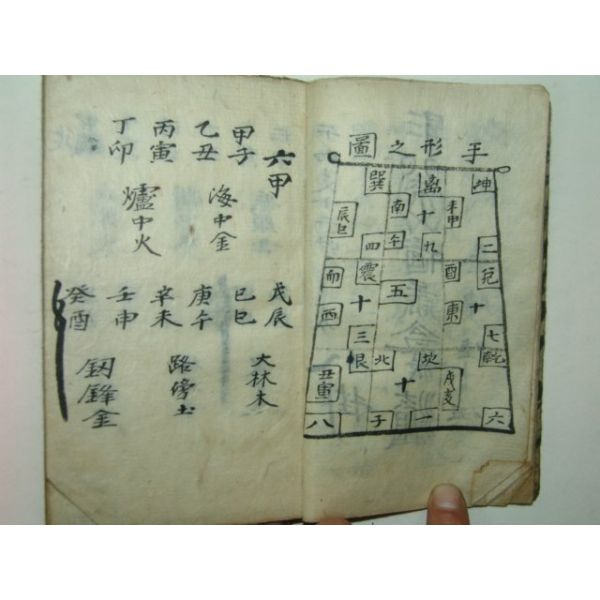 手形之圖
巽 离 坤
辰巳 南 十 未申
四 至 九 二 兌
震 五 酉
西 十 東 十
三 七 乾
艮 北
丑寅 十 戌亥
八 子 一 六
六甲
甲子
乙丑
海中金
丙寅
丁卯
爐中火
戊辰
己巳
大林木
庚午
辛未
路傍土
壬申
癸酉
釰鋒金